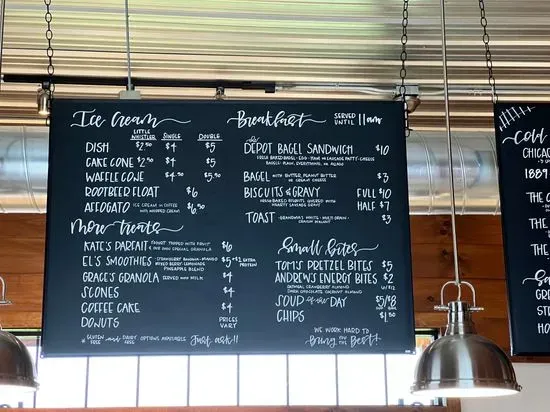 Ice Cream
LITTLE WHISTLER SINGLE DOUBLE
DISH $2.50 $4 $5
CAKE CONE $2.50 $4 $5
WAFFLE COWE $4.50 $5.50
ROOTBEER FLOAT $6
AFFOGATO ICE CREAM IN COFFEE WITH WHIPPED CREAM! $6.50
More treats
KATE'S PARFAIT YOGURT TOPPED WITH FRUIT $6
EL'S SMOOTHIES STRAWBERRY BANANA · MANGO $5 +$1 EXTRA PROTEIN
MIXED BERRY · LEMONADE
PINEAPPLE BLEND
GRACE'S GRANOLA SERVED WITH MILK $4
SCONES $4
COFFEE CAKE $4
DONUTS PRICES VARY
* GLUTEN FREE AND DAIRY FREE OPTIONS AVAILABLE Just ask!!
Breakfast SERVED UNTIL 11am
the DEPOT BAGEL SANDWICH $10
FRESH BAKED BAGEL · EGG · HAM OR SAUSAGE PATTY · CHEESE
BAGELS: PLAIN, EVERYTHING, OR ASIAGO
BAGEL WITH BUTTER, PEANUT BUTTER OR CREAM CHEESE $3
BISCUITS & GRAVY FULL $10
FRESH BAKED BISCUITS COVERED WITH HEARTY SAUSAGE GRAVY HALF $7
TOAST GRANDMA'S WHITE · MULTI GRAIN · $3
Small bites
TOM'S PRETZEL BITES $5
ANDREW'S ENERGY BITES $2
OATMEAL CRANBERRY ALMOND 6/$12
DARK CHOCOLATE COCONUT ALMOND
SOUP of the DAY $5/$8
CHIPS $1.50
WE WORK HARD TO
Bring YOU THE Best!
Cold
CHICAG
1889
THE
THE C
THE
S
GRE
STRE
HO